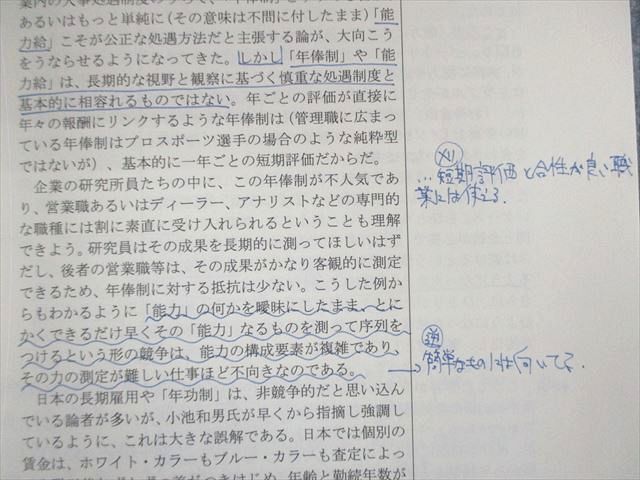 業内の人事処遇制度のうちで、「年俸制」
あるいはもっと単純に(その意味は不問に付したまま)「能
力給」こそが公正な処遇方法だと主張する論が、大向こう
をうならせるようになってきた。しかし「年俸制」や「能
力給」は、長期的な視野と観察に基づく慎重な処遇制度と
基本的に相容れるものではない。年ごとの評価が直接に
年々の報酬にリンクするような年俸制は(管理職に広まっ
ている年俸制はプロスポーツ選手の場合のような純粋型
ではないが)、基本的に一年ごとの短期評価だからだ。
企業の研究所員たちの中に、この年俸制が不人気であ
り、営業職あるいはディーラー、アナリストなどの専門的
な職種には割に素直に受け入れられるということも理解
できよう。研究員はその成果を長期的に測ってほしいはず
だし、後者の営業職等は、その成果がかなり客観的に測定
できるため、年俸制に対する抵抗は少ない。こうした例か
らもわかるように「能力」の何かを曖昧にしたまま、とに
かくできるだけ早くその「能力」なるものを測って序列を
つけるという形の競争は、能力の構成要素が複雑であり、
その力の測定が難しい仕事ほど不向きなのである。
日本の長期雇用や「年功制」は、非競争的だと思い込ん
でいる論者が多いが、小池和男氏が早くから指摘し強調し
ているように、これは大きな誤解である。日本では個別の
賃金は、ホワイト・カラーもブルー・カラーも査定によっ
がつきはじめ、年齢と勤続年数が
メリ
…短期評価と合性が良い職
業には使える.
逆
→簡単なものには向いてる.